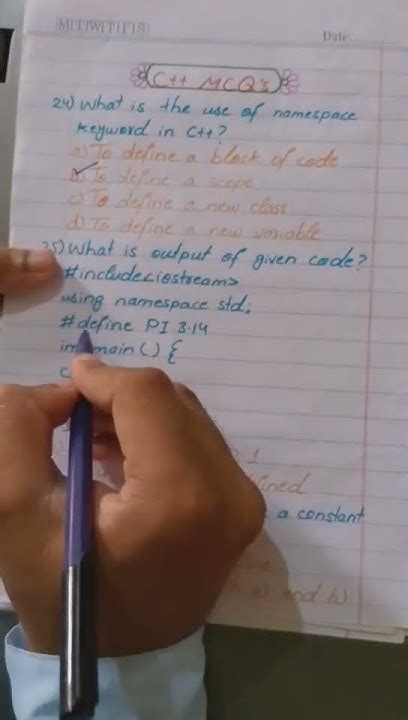 M T W T F S S
Date:
C++ MCQ's
24) What is the use of namespace
keyword in C++?
a) To define a block of code
b) To define a scope
c) To define a new class
d) To define a new variable
25) What is output of given code?
#include<iostream>
using namespace std;
#define PI 3.14
int main() {
c
1
fined
a constant
a) and b)